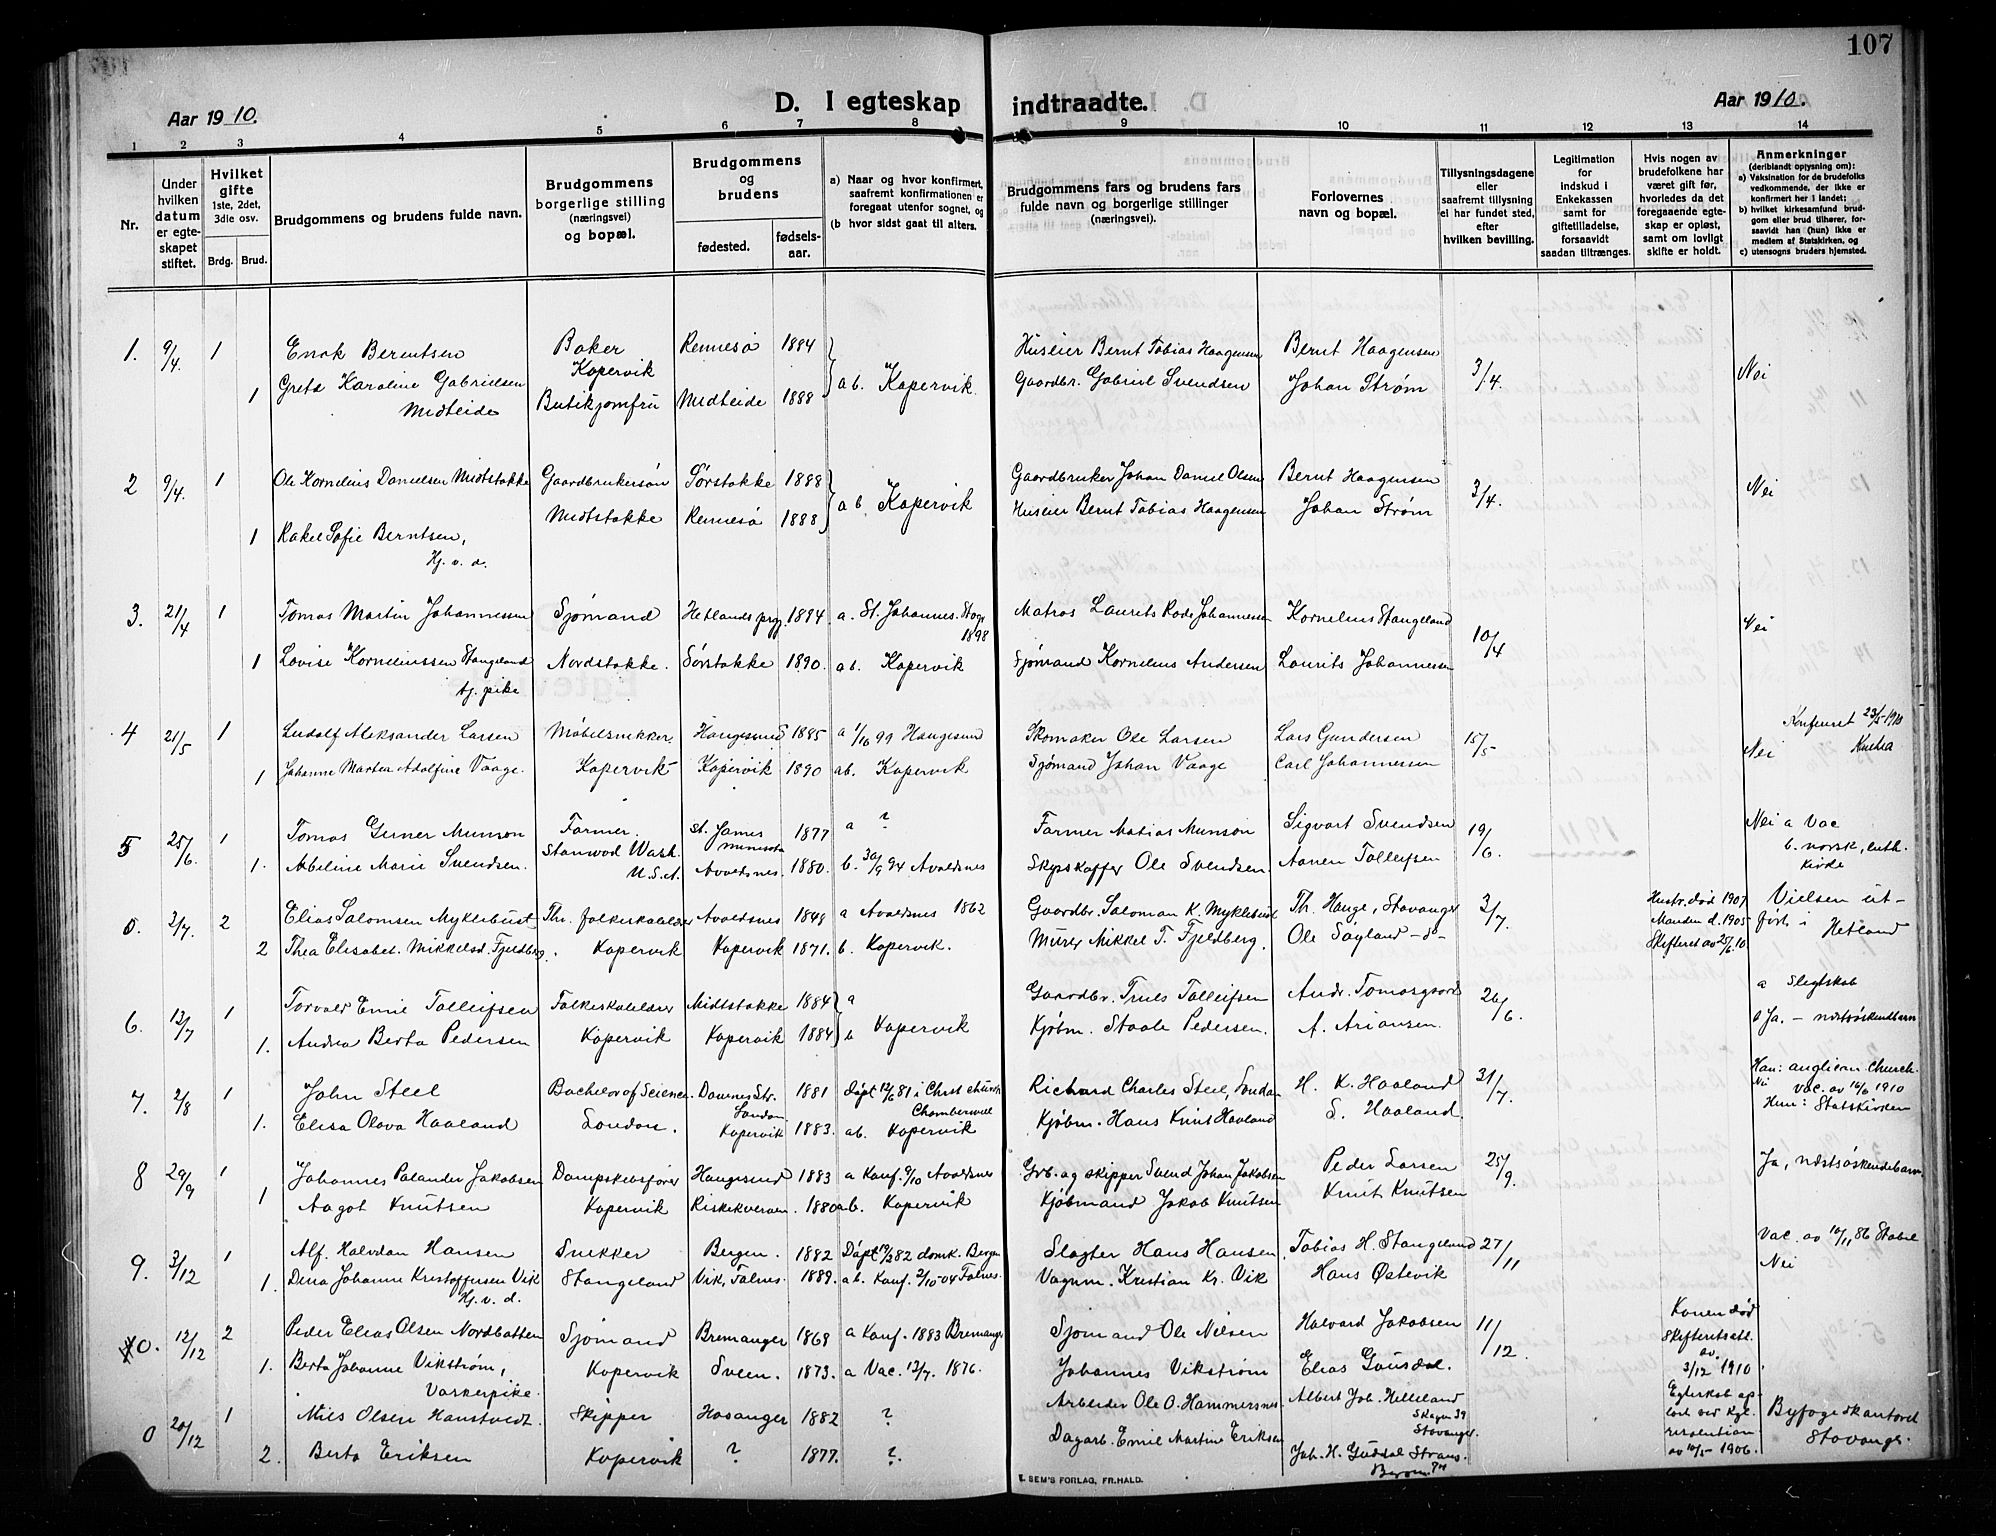 107
Aar 1910.
D. I egteskap indtraadte.
Aar 1910.
1 2 3 4 5 6 7 8 9 10 11 12 13 14
Nr.
Under hvilken datum er egteskapet stiftet.
Hvilket gifte 1ste, 2det, 3die osv.
Brdg. Brud.
Brudgommens og brudens fulde navn.
Brudgommens borgerlige stilling (næringsvei) og bopæl.
Brudgommens og brudens
fødested.
fødsels-aar.
a) Naar og hvor konfirmert, saafremt konfirmationen er foregaat utenfor sognet, og
(b hvor sidst gaat til alters.
Brudgommens fars og brudens fars fulde navn og borgerlige stillinger (næringsvei).
Forlovernes navn og bopæl.
Tillysningsdagene eller saafremt tillysning ei har fundet sted, efter hvilken bevilling.
Legitimation for indskud i Enkekassen samt for giftetilladelse, forsaavidt saadan tiltrænges.
Hvis nogen av brudefolkene har været gift før, hvorledes da det foregaaende egteskap er opløst, samt om lovligt skifte er holdt.
Anmerkninger
(deriblandt opjysning om):
a) Vaksination for de brudefolks vedkommende, der ikke er konfirmert her i landet;
b) hvilket kirkesamfund brudgom eller brud tilhører, forsaavidt han (hun) ikke er medlem af Statskirken, og
c) utensogns bruders hjemsted.
1. 9/4. 1 Enok Berentsen Baker Rennesø 1884 Huseier Bernt Tobias Haagensen Bernt Haagensen 3/4. Nei
Kopervik ab. Kopervik
1 Grete Karoline Gabrielsen Butikjomfru Midteide 1888 Gaardbr. Gabriel Svendsen Johan Strøm
Midteide
2 9/4. 1 Ole Kornelius Danielsen Midtstokke Gaardbrukersøn Sørstokke 1888 ab Kopervik Gaardbruker Johan Daniel Olsen Bernt Haagensen 3/4. Nei
Midtstokke Rennesø 1888 Huseier Bernt Tobias Haagensen Johan Strøm
1 Rakel Sofie Berntsen,
Hj. v. d.
3. 21/4 1 Tomas Martin Johannessen Sjømand Hetlands prgj. 1884 a. St. Johannes. Stvgr 1898 Matros Laurits Rode Johannessen Kornelius Stangeland 10/4 Nei
1 Lovise Korneliussen Stangeland Nordstokke. Sørstokke 1890. ab. Kopervik Sjømand Kornelius Andersen Laurits Johannessen
tj. pike
4 21/5 1 Ludolf Aleksander Larsen Møbelsnekker Haugesund 1885 a 1/10 99 Haugesund Skomaker Ole Larsen Lars Gundersen 15/5 Nei
1 Johanne Martea Adolfine Vaage. Kopervik Kopervik 1890 ab. Kopervik Sjømand Johan Vaage Carl Johannessen
23/5-1910
5 25/6. 1 Tomas Gerner Munson Farmer. St. James Minnesota 1877 a ? Farmer Matias Munson Sigvart Svendsen 19/6. Nei a Vac
Stanwod Wash. U.S.A. b. norsk, luth. kirke
1. Abeline Marie Svendsen. Avaldsnes. 1880. b. 30/9 94 Avaldsnes Skipskaffer Ole Svendsen. Aanen Tolleifsen
0. 3/7. 2 Elias Salomsen Myklebust Fhr. folkeskolelærer Avaldsnes 1848 a Avaldsnes 1862 Gaardbr. Saloman K. Myklebust Th. Hauge, Stavanger 3/7. Hustr. død 1907 Vielsen ut-
Manden d. 1905 ført i
2 Thea Elisabet Mikkelsd. Fjeldberg. Kopervik Kopervik 1871. b. Kopervik. Murer Mikkel T. Fjeldberg. Ole Søyland -d- Skifteret av 25/6 10 Hetland
6. 13/7 1 Torvald Emil Tolleifsen Folkeskolelærer Midtstokke 1884 a Gaardbr. Truls Tolleifsen Andr. Tomasgaard 26/6. a Slegtskab
1. Andrea Berta Pedersen Kopervik Kopervik 1884 b Kopervik Kjøbm. Staale Pedersen. A. Ariansen. Ja. - næstsøskendbarn
7. 2/8 1 John Steel Bachelor of Science. Downes Str. London 1881 døpt 12/6 81 i Christ church Chamberwell Richard Charles Steel, London H. K. Haaland 31/7. Han: anglican Church.
Nei vac. av 16/6 1910
1. Elisa Olava Haaland London. Kopervik 1883. ab. Kopervik Kjøbm. Hans Knut Haaland S. Haaland. Hun: Statskirken
8 29/9 1 Johannes Palander Jakobsen Dampskibsfører Haugesund 1883 a Konf. 9/10 Avaldsnes Grb. og skipper Svend Johan Jakobsen Peder Larsen 25/9. Ja, næstsøskendebarn
1 Aagot Knutsen Kopervik Riskekverven. 1880 ab. Kopervik Kjøbmand Jakob Knutsen Knut Knutsen
9. 3/12 1 Alf. Halvdan Hansen Snekker Bergen. 1882 Døpt 12/3 82 domk. Bergen Slagter Hans Hansen Tobias H. Stangeland 27/11 Vac. av 10/11 86
1. Dena Johanne Kristoffersen Vik Stangeland Vik, Falnes. 1889. ab. Konf. 2/10-04 Falnes. Vognm. Kristian Kr. Vik Hans Østevik Nei
Hj. v. d.
10. 12/12 2 Peder Elias Olsen Nordbotten Sjømand Bremanger 1868 a Konf. 1883 Bremanger Sjømand Ole Nielsen Halvard Jakobsen 11/12. Konen død
Skifteretsatt. av 3/12 1910
1. Berta Johanne Vikstrøm, Kopervik Sveen. 1873. a Vac. 12/7. 1876. Johannes Vikstrøm Elias Gausdal.
Vaskerpike.
0 20/12 1 Nils Olsen Hanstvedt. Skipper Hosanger 1882 ? Arbeider Ole O. Hammersnes Albert Joh. Helleland Skagen 39 Stavanger. Egteskab opløst ved Kgl. resolution av 10/5 1906. Byfogedkontoret Stavanger.
2. Berta Eriksen Kopervik ? 1877. ? Dagarb. Emil Martin Eriksen Joh. H. Guddal
E. SEM'S FORLAG, FR.HALD.